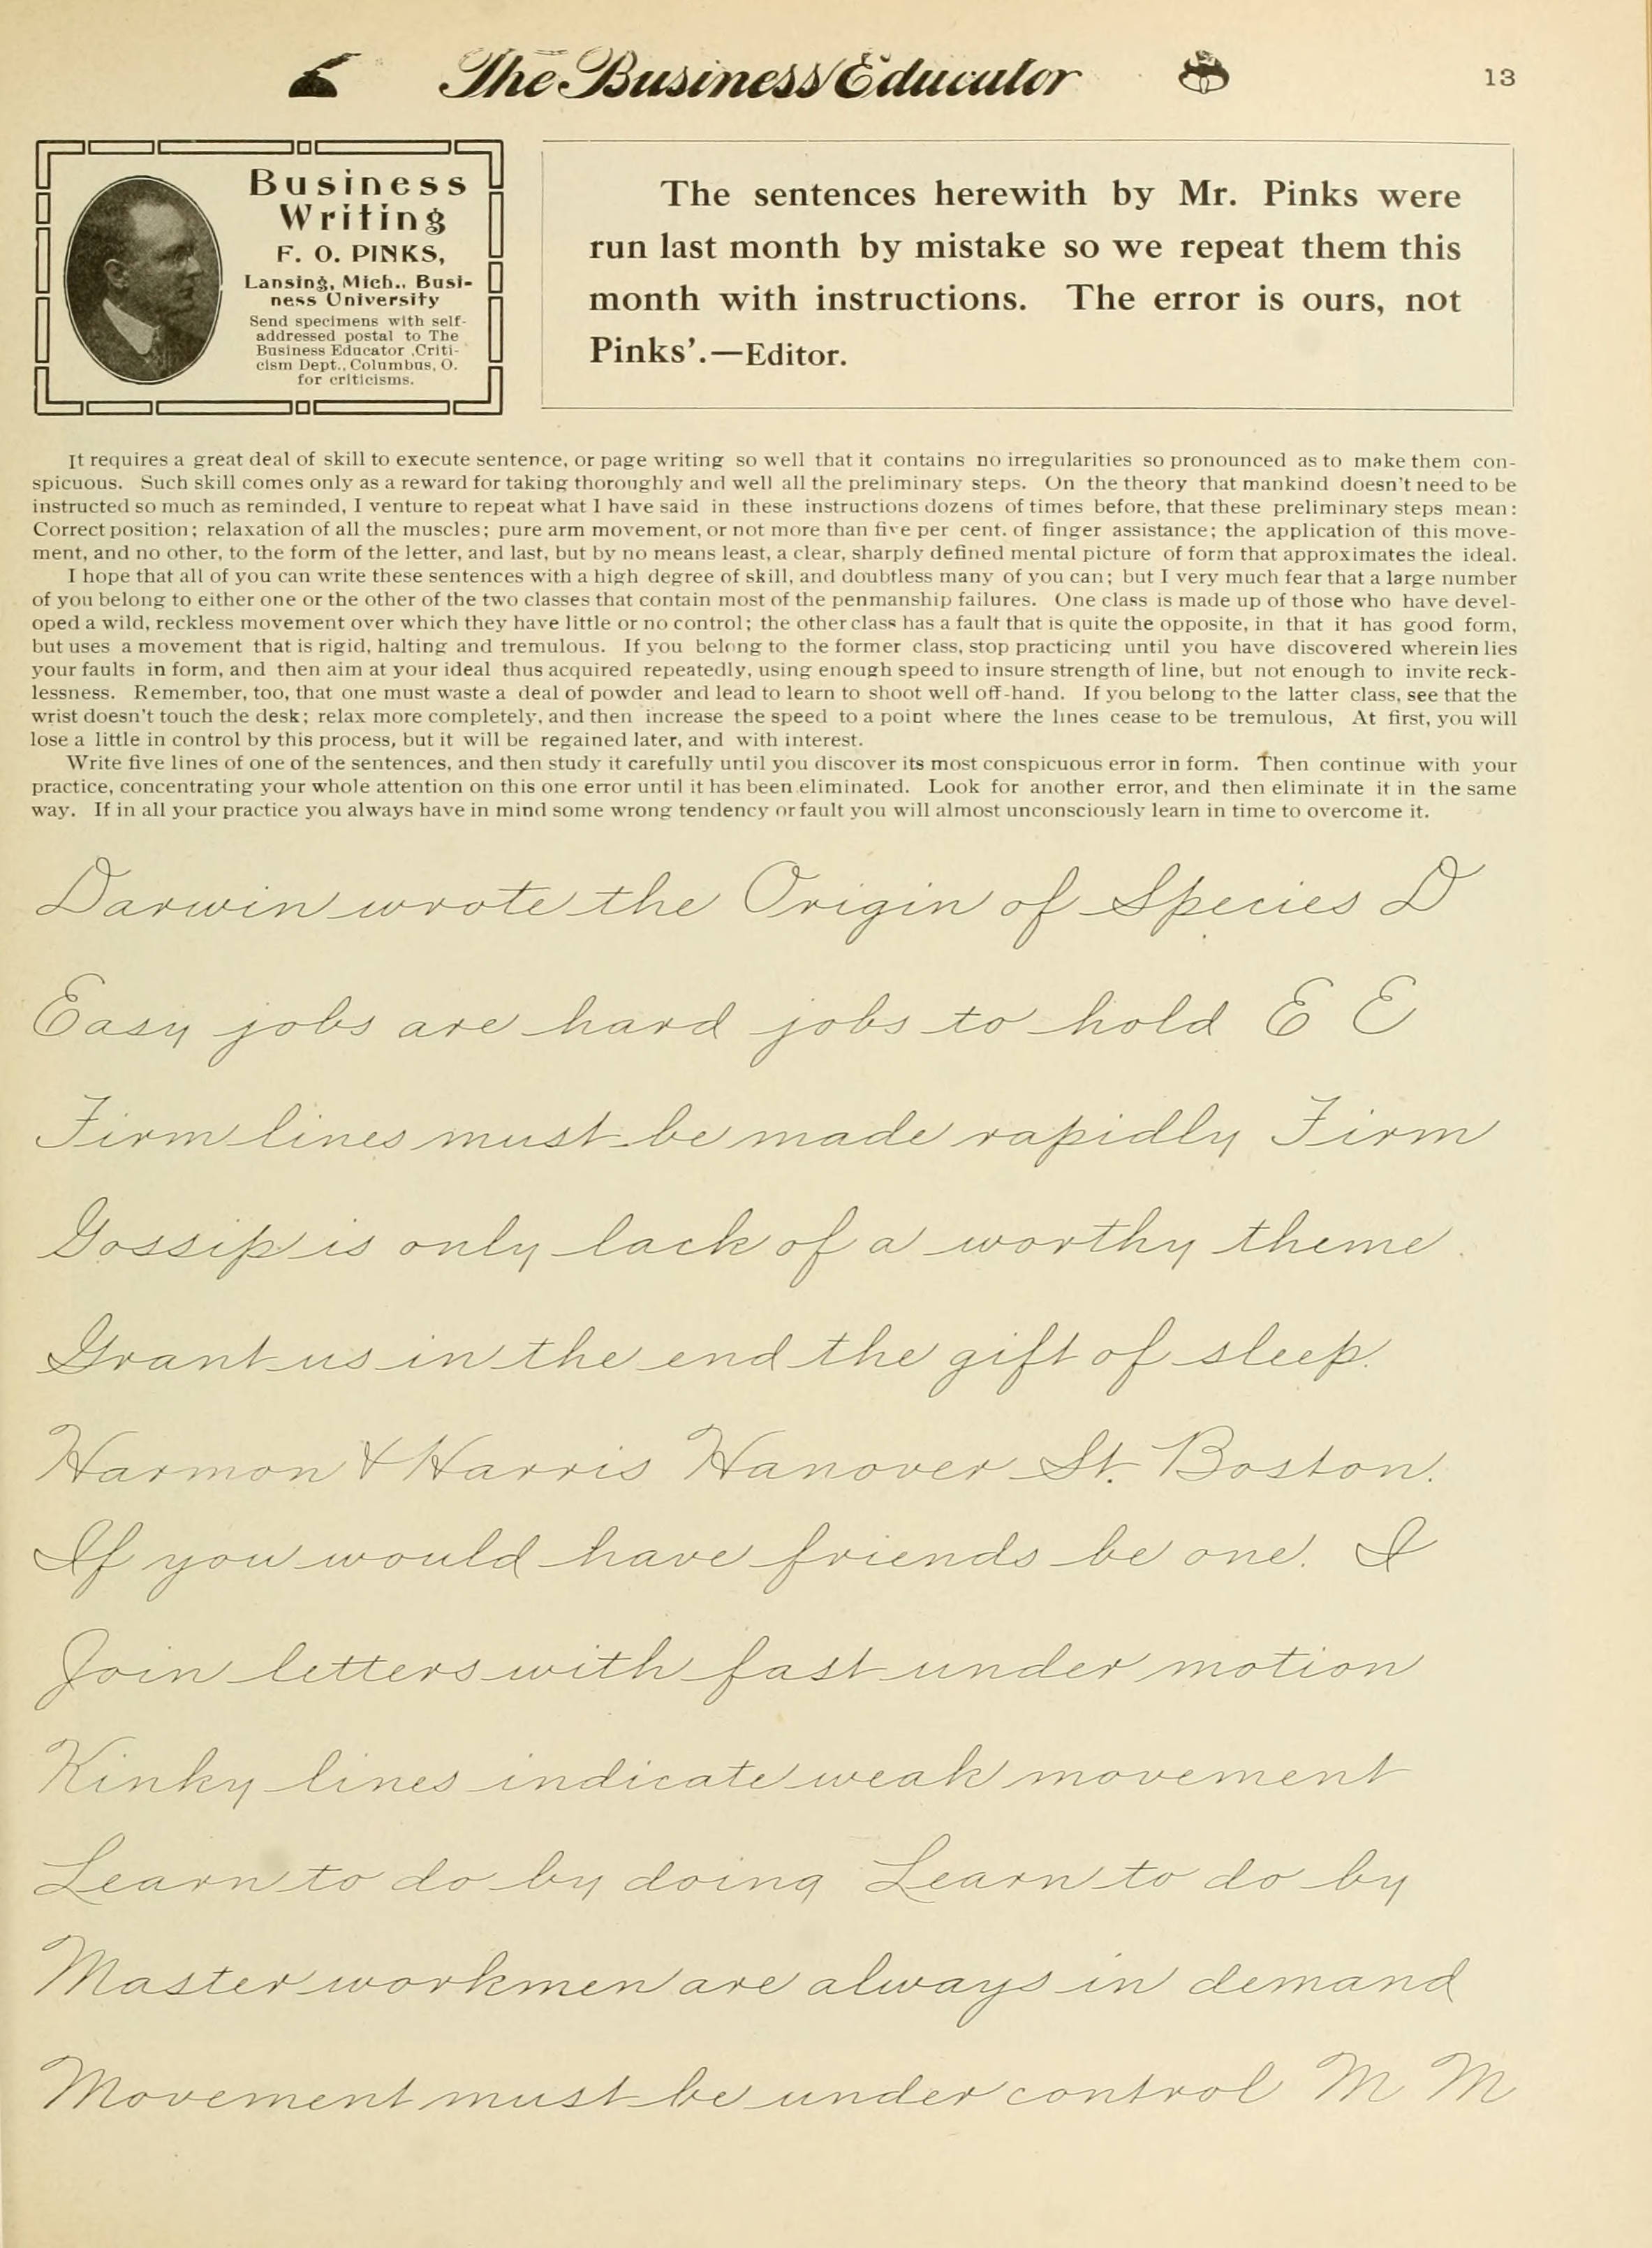 The Business Educator
13
Business
Writing
F. O. PINKS,
Lansing, Mich., Busi-
ness University
Send specimens with self-
addressed postal to The
Business Educator ,Criti-
cism Dept., Columbus, O.
for criticisms.
The sentences herewith by Mr. Pinks were
run last month by mistake so we repeat them this
month with instructions. The error is ours, not
Pinks'.—Editor.
It requires a great deal of skill to execute sentence, or page writing so well that it contains no irregularities so pronounced as to make them con-
spicuous. Such skill comes only as a reward for taking thoroughly and well all the preliminary steps. On the theory that mankind doesn't need to be
instructed so much as reminded, I venture to repeat what I have said in these instructions dozens of times before, that these preliminary steps mean:
Correct position; relaxation of all the muscles; pure arm movement, or not more than five per cent. of finger assistance; the application of this move-
ment, and no other, to the form of the letter, and last, but by no means least, a clear, sharply defined mental picture of form that approximates the ideal.
I hope that all of you can write these sentences with a high degree of skill, and doubtless many of you can; but I very much fear that a large number
of you belong to either one or the other of the two classes that contain most of the penmanship failures. One class is made up of those who have devel-
oped a wild, reckless movement over which they have little or no control; the other class has a fault that is quite the opposite, in that it has good form,
but uses a movement that is rigid, halting and tremulous. If you belong to the former class, stop practicing until you have discovered wherein lies
your faults in form, and then aim at your ideal thus acquired repeatedly, using enough speed to insure strength of line, but not enough to invite reck-
lessness. Remember, too, that one must waste a deal of powder and lead to learn to shoot well off-hand. If you belong to the latter class, see that the
wrist doesn't touch the desk; relax more completely, and then increase the speed to a point where the lines cease to be tremulous, At first, you will
lose a little in control by this process, but it will be regained later, and with interest.
Write five lines of one of the sentences, and then study it carefully until you discover its most conspicuous error in form. Then continue with your
practice, concentrating your whole attention on this one error until it has been eliminated. Look for another error, and then eliminate it in the same
way. If in all your practice you always have in mind some wrong tendency or fault you will almost unconsciously learn in time to overcome it.
Darwin wrote the Origin of Species D
Easy jobs are hard jobs to hold E E
Firm lines must be made rapidly Firm
Gossip is only lack of a worthy theme.
Grant us in the end the gift of sleep.
Harmon & Harris Hanover St. Boston.
If you would have friends be one. I
Join letters with fast under motion
Kinky lines indicate weak movement
Learn to do by doing Learn to do by
Master workmen are always in demand
Movement must be under control M M